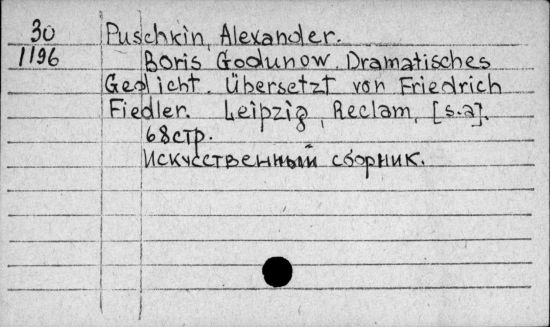 30 Puschkin, Alexander.
1196 Boris Godunow. Dramatisches
Gedicht. Übersetzt von Friedrich
Fiedler. Leipzig, Reclam, [s.a].
68стр.
Искусственный сборник.